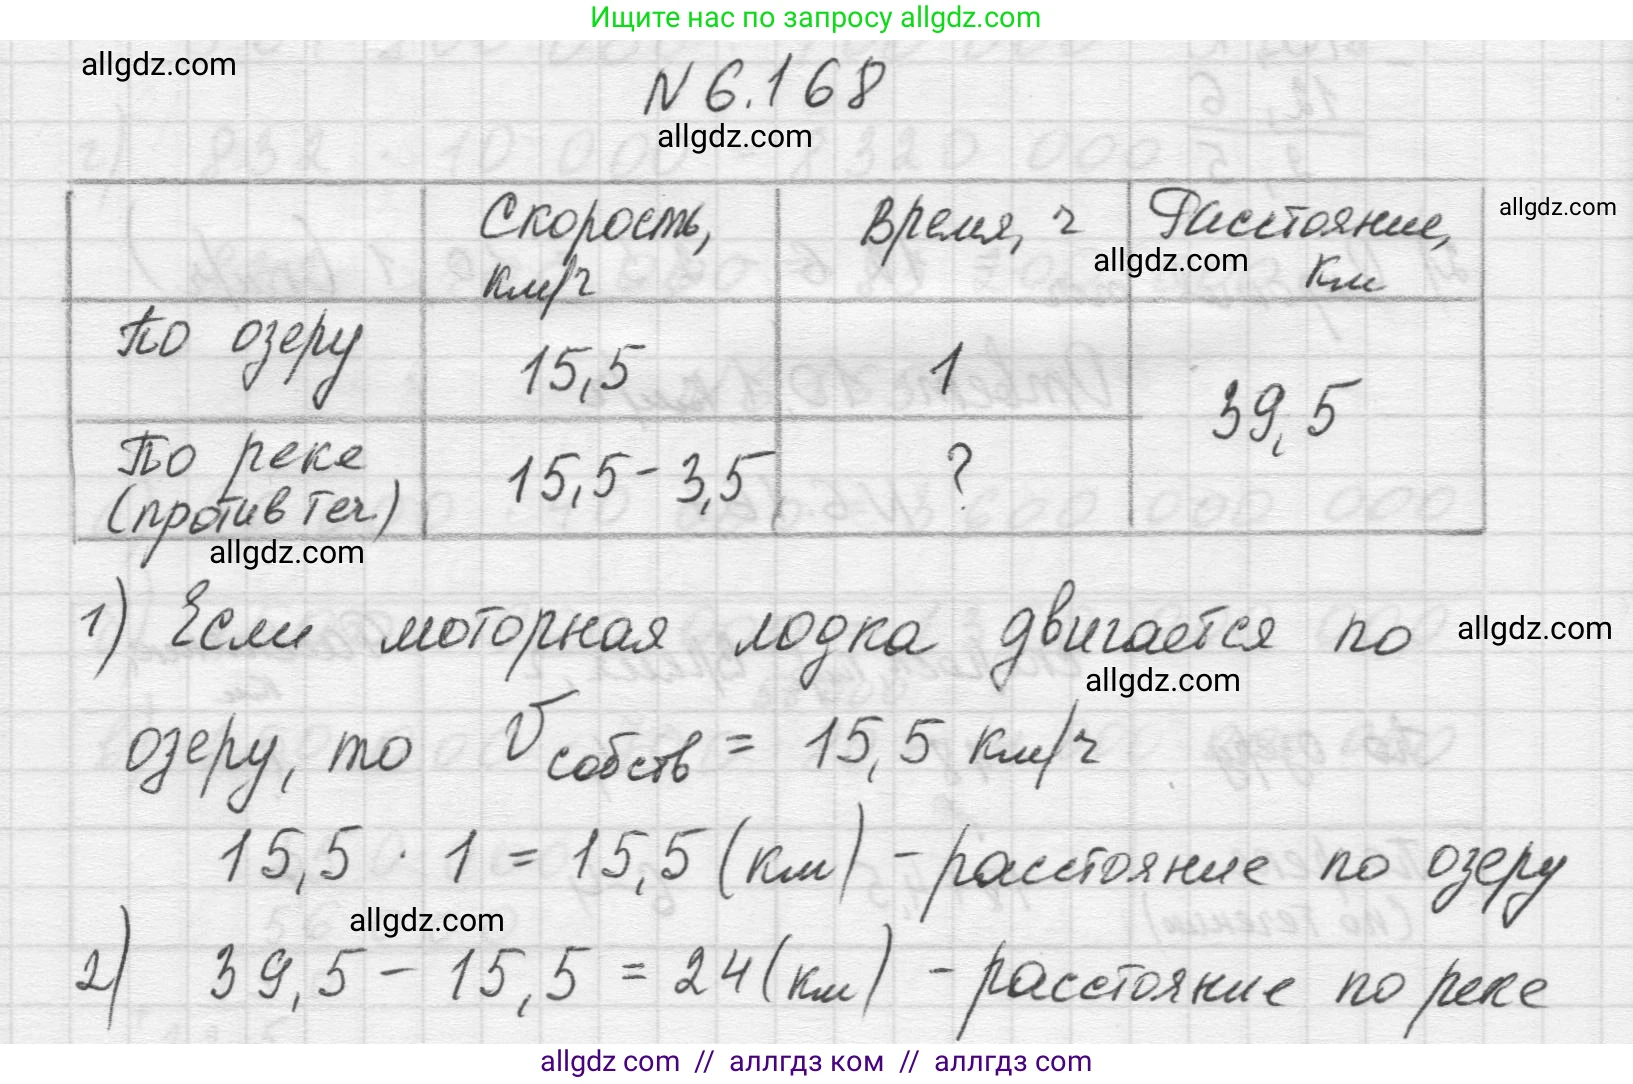 Ищите нас по запросу allgdz.com
allgdz.com
N 6.168
allgdz.com
Скорость, км/ч
Время, ч
Расстояние, км
allgdz.com
allgdz.com
По озеру
15,5
1
39,5
По реке (против теч.)
15,5 - 3,5
?
allgdz.com
1) Если моторная лодка двигается по
allgdz.com
allgdz.com
озеру, то Vсобств = 15,5 км/ч
15,5 · 1 = 15,5 (км) - расстояние по озеру
allgdz.com
2) 39,5 - 15,5 = 24 (км) - расстояние по реке
allgdz com // аллгдз ком // allgdz.com